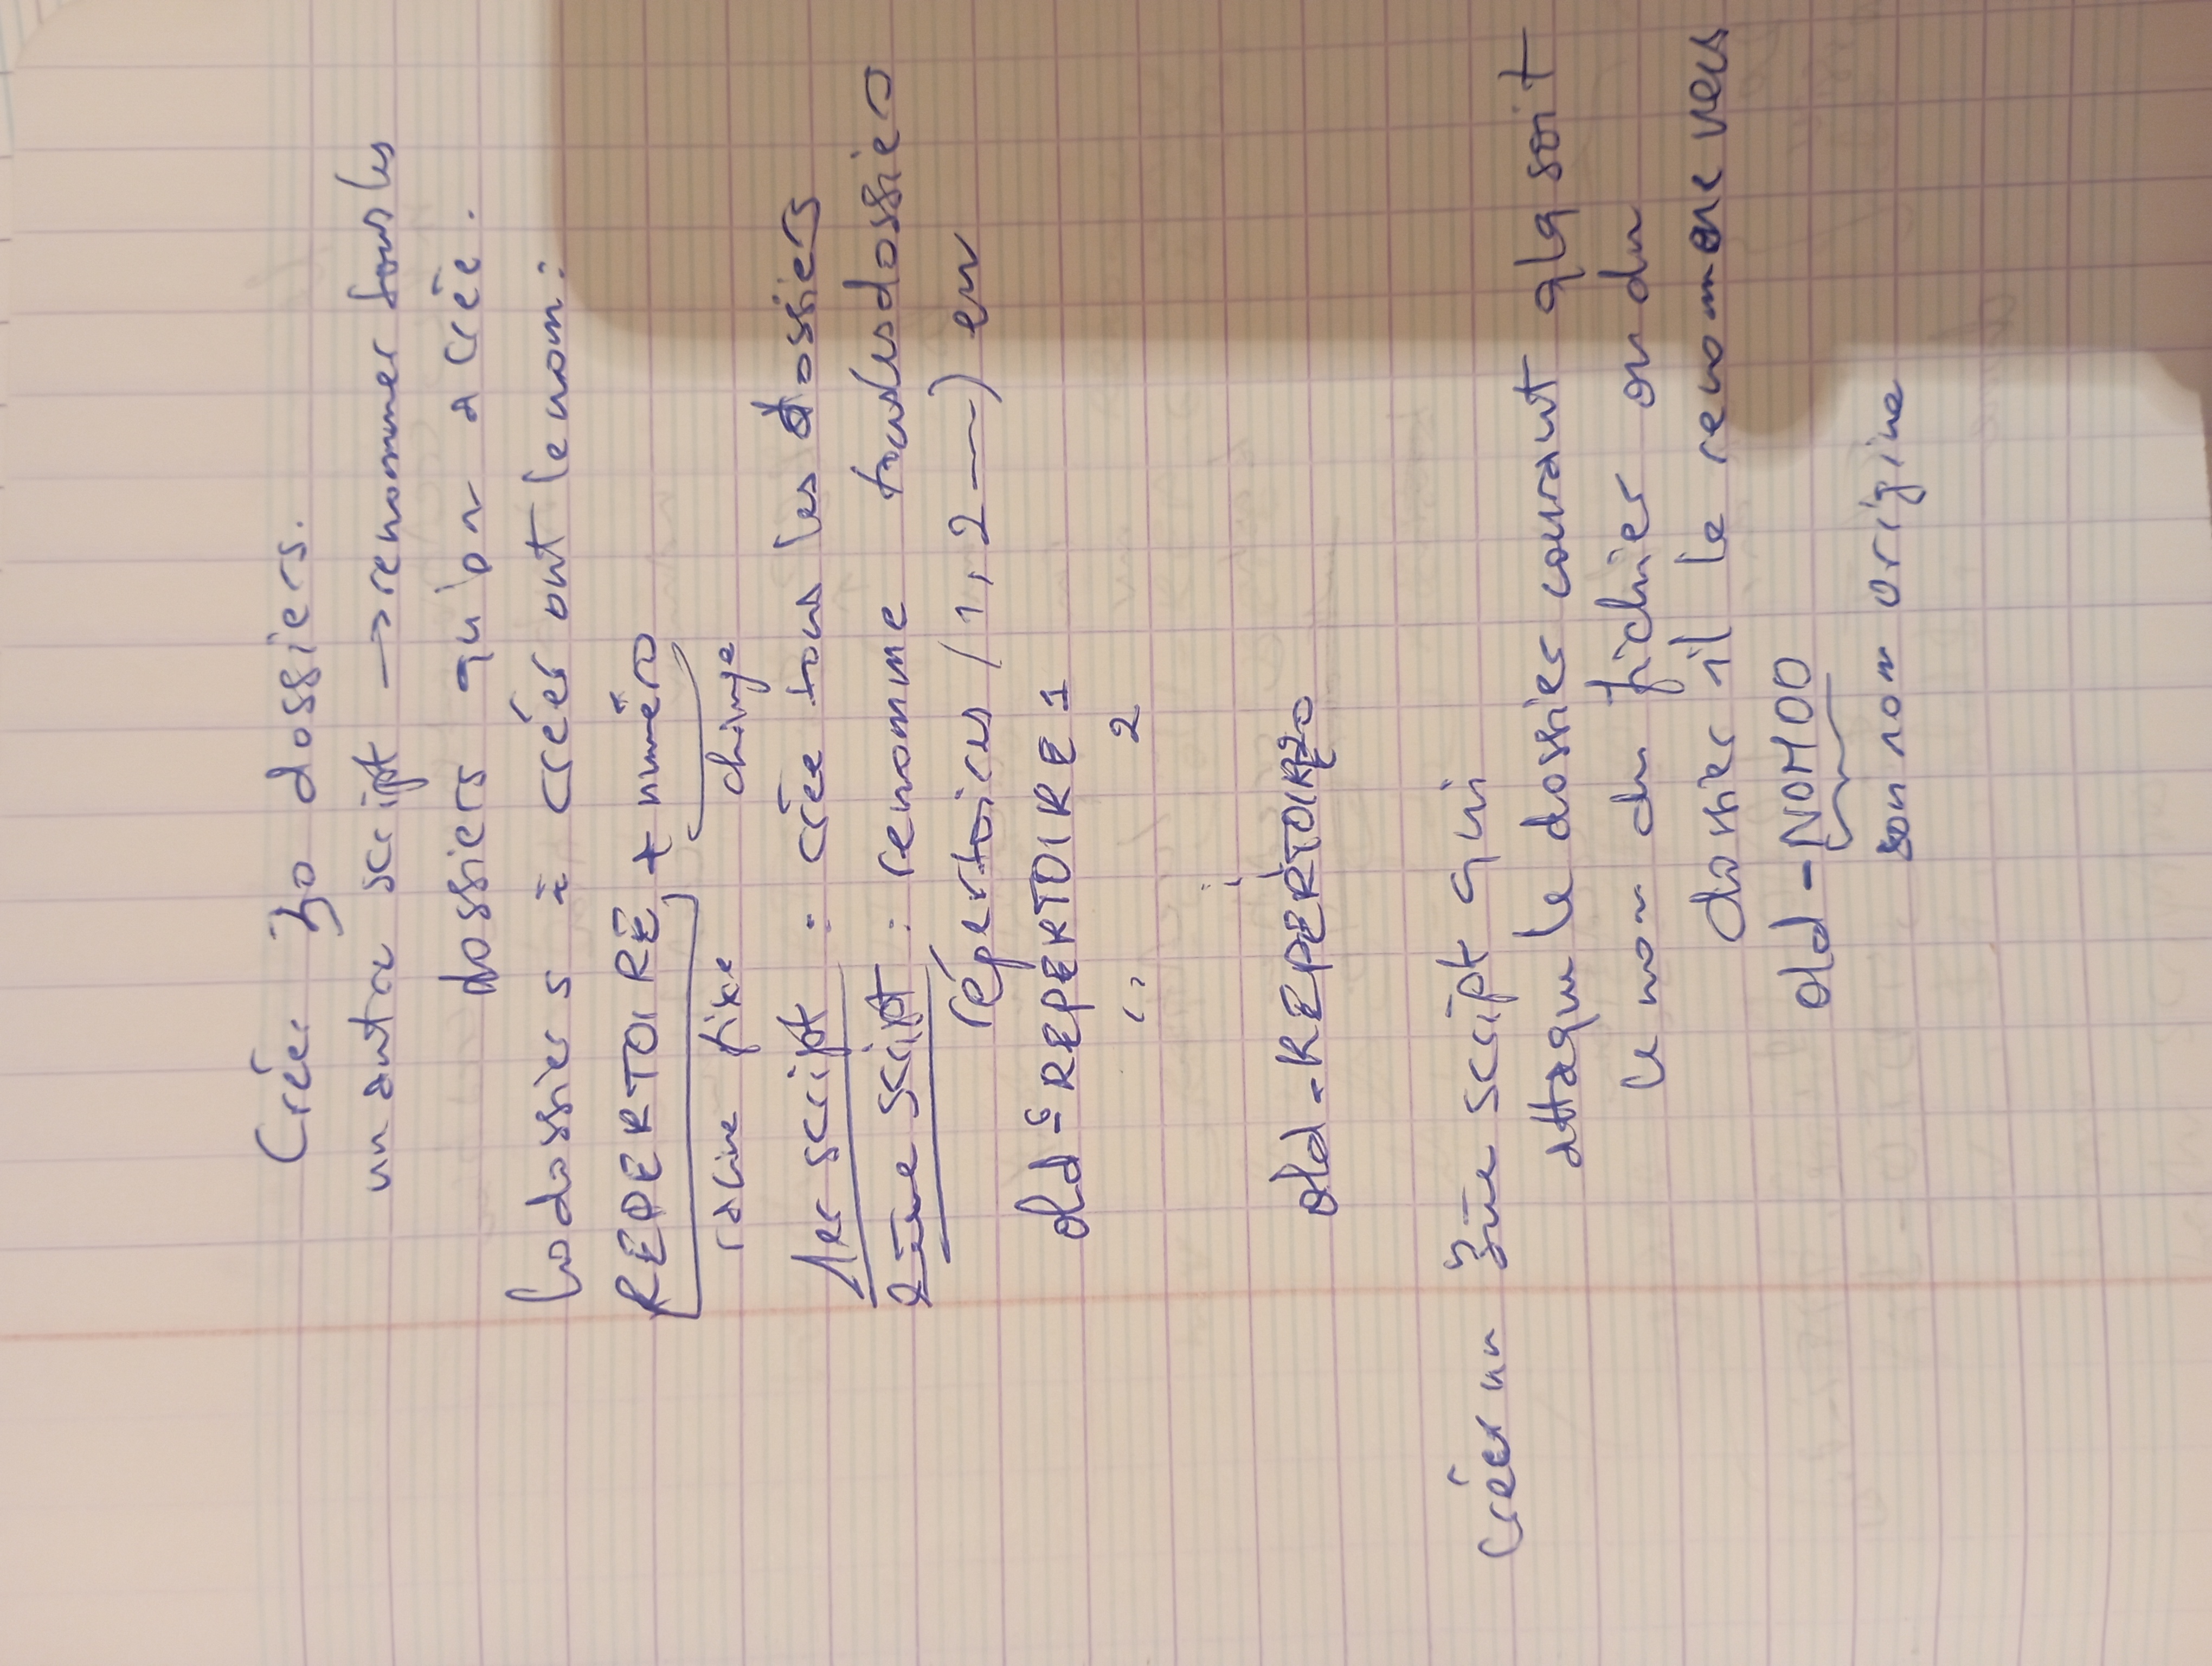 Créer 30 dossiers.
un autre script → renommer tous les
dossiers qu'on a créé.
Les dossiers à créer ont le nom :
REPERTOIRE + numéro
racine fixe change
1er script : crée tous les dossiers
2ème script : renomme tous les dossiers
répertoires (1, 2 —) en
old-REPERTOIRE 1
" 2
old-REPERTOIRE
Créer un 3ème script qui
attaque le dossier courant qlq soit
le nom du fichier ou du
dossier il le renomme vers
old-NOMOO
son nom origine